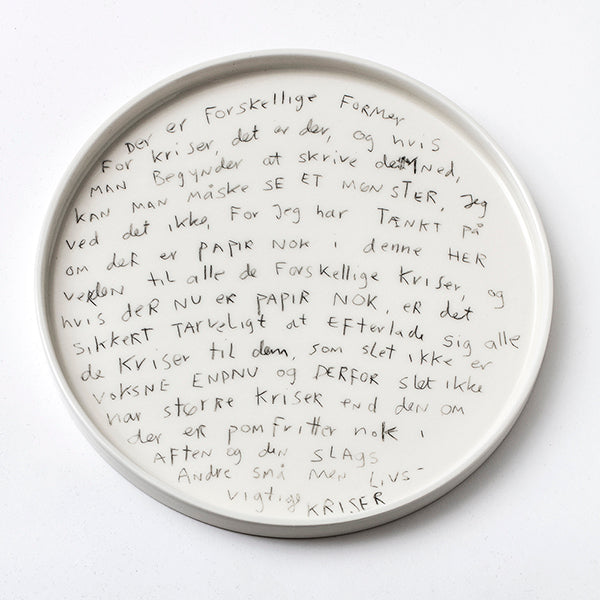 Der er Forskellige Former
For kriser, det er der, og hvis
man Begynder at skrive dem Ned,
kan man måske SE ET MØNSTER, jeg
ved det ikke, For Jeg har TÆNKT på
om der er PAPIR NOK i denne HER
verden til alle de Forskellige Kriser, og
hvis deR NU eR PAPIR NOK, eR det
sikkeRT TARveligt at EFTerlade sig alle
de Kriser til dem, som slet ikke er
voksne ENDNU og DERFOR slet ikke
har støRRe KriseR end den om
der eR pomFritter nok i
AFTen og den SLAGS
Andre små men Livs-
vigtige KRISER